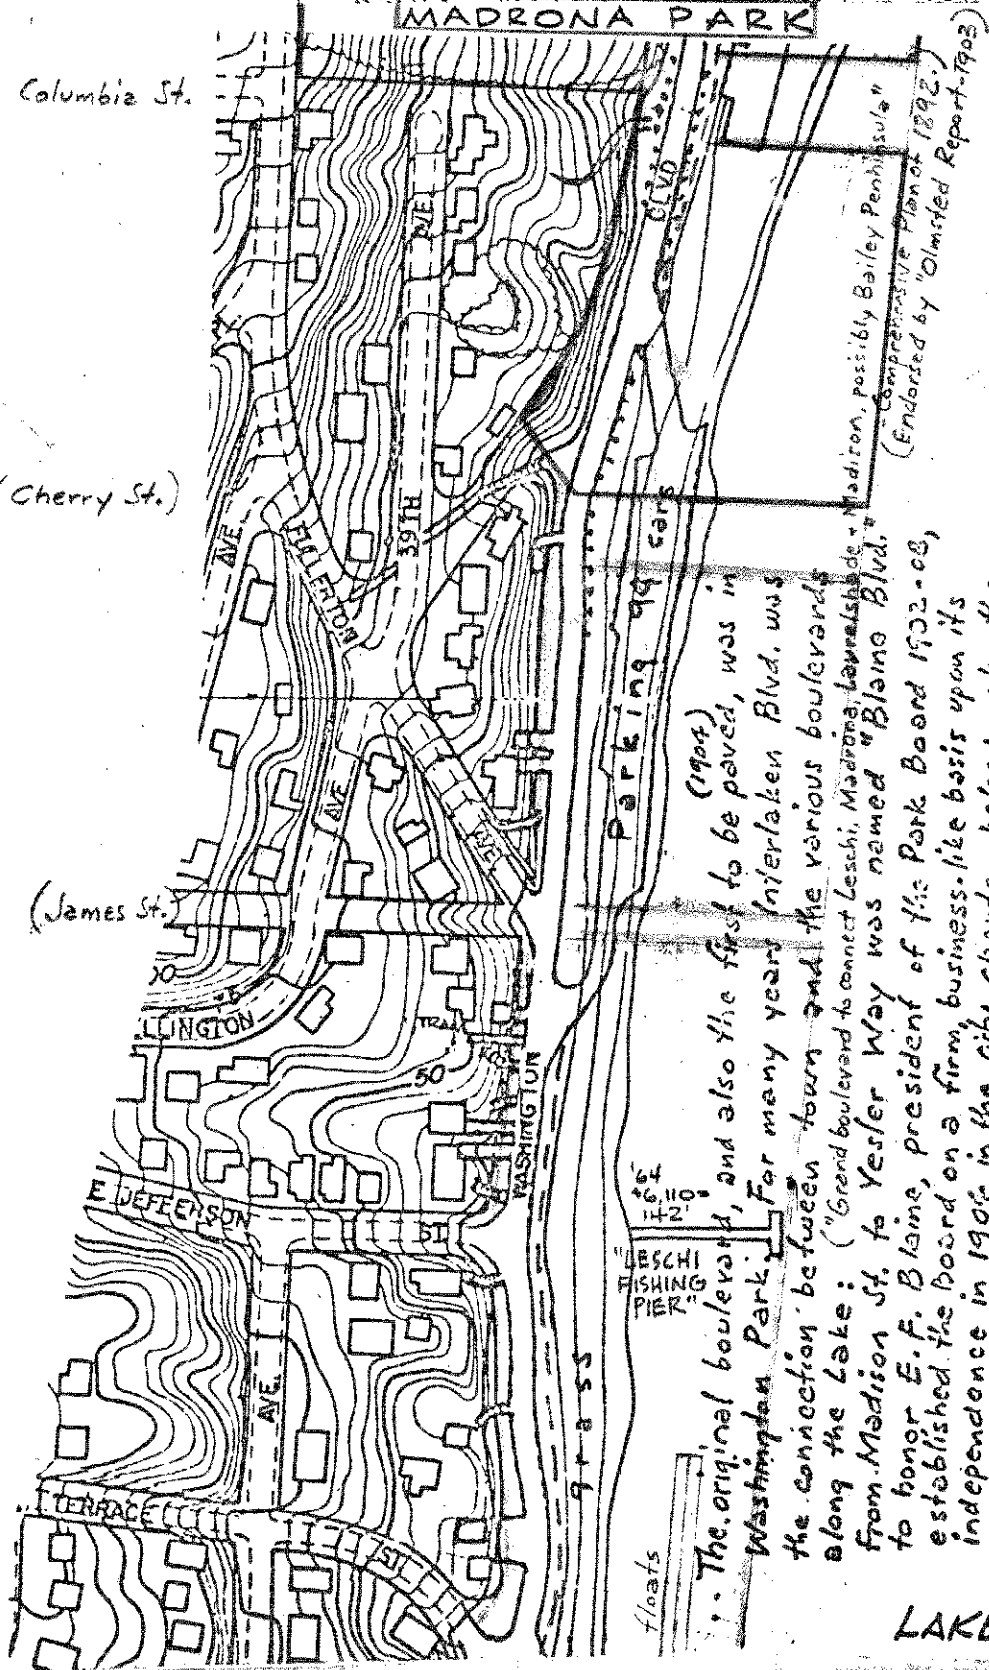 MADRONA PARK
Columbia St.
AVE
BLVD
(Cherry St.)
AVE
FULLERTON
39TH
Parking 94 cars
AVE
AVE
(James St.)
LLINGTON
TRAIL
50
WASHINGTON
E JEFFERSON
ST
AVE
TERRACE
ST
grass
'64
"LESCHI
FISHING
PIER"
floats
(1904)
The original boulevard, and also the first to be paved, was in
Washington Park. For many years Interlaken Blvd. was
the connection between town and the various boulevards
along the Lake: ("Grand boulevard to connect Leschi, Madrona, Laurelshade & Madison, possibly Bailey Peninsula"
- Comprehensive Plan of 1892.)
(Endorsed by "Olmsted Report-1903)
from Madison St. to Yesler Way was named "Blaine Blvd."
to honor E. F. Blaine, president of the Park Board 1902-08,
established the Board on a firm, business-like basis upon its
independence in 1904 in the city charter
LAKE